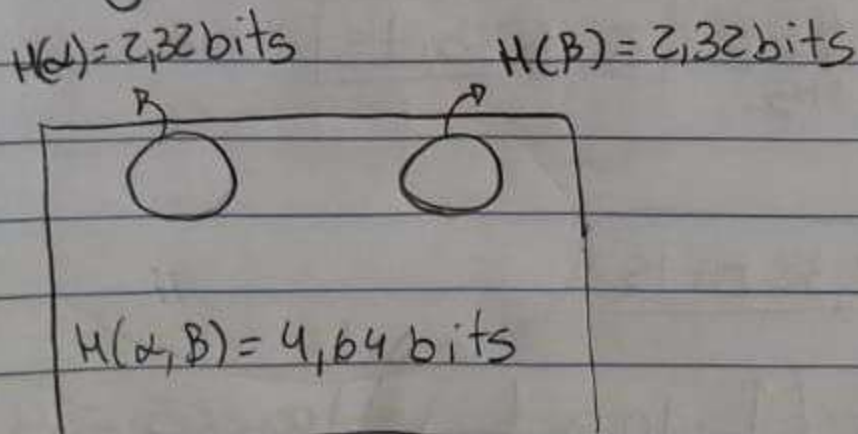 H(α)=2,32bits
H(β)=2,32bits
H(α,β)=4,64 bits